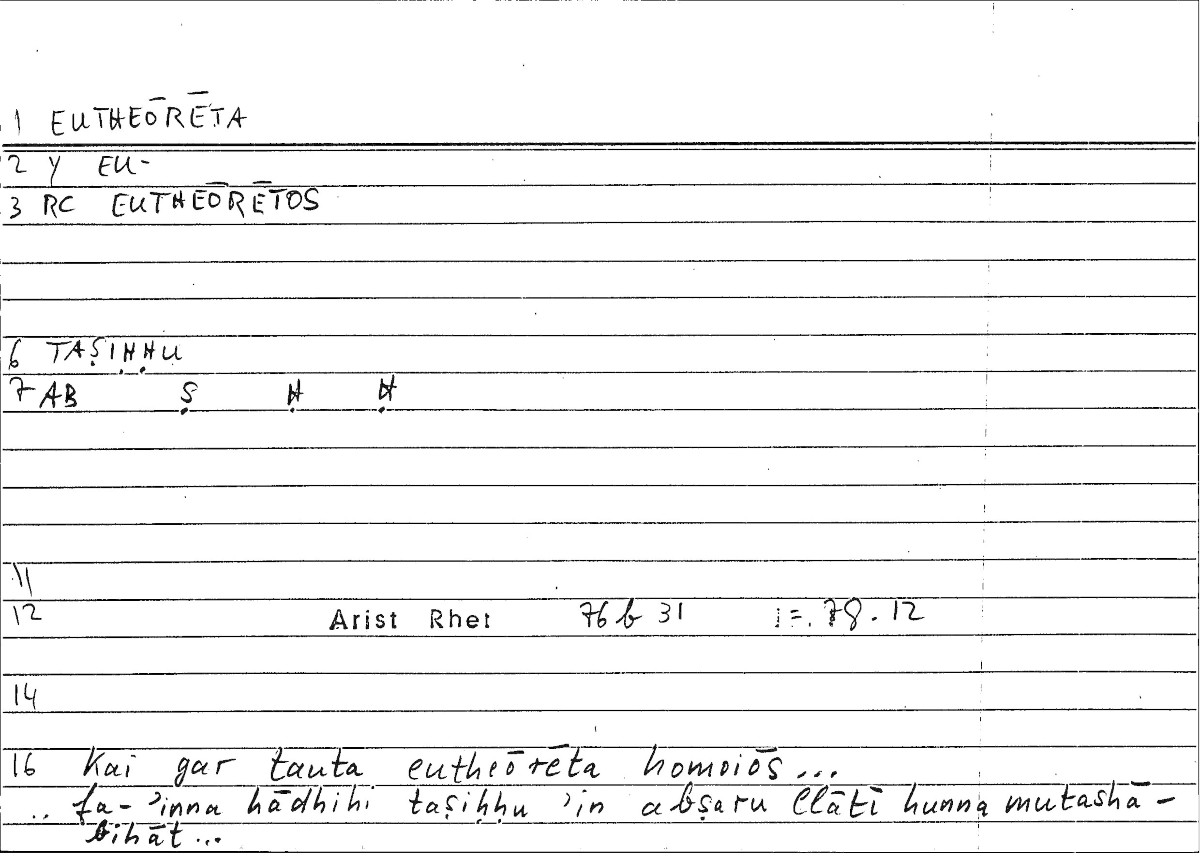 1 EUTHEŌRĒTA
2 Y EU-
3 RC EUTHEŌRĒTOS
6 TAṢIḤḤU
7 AB Ṣ Ḥ Ḥ
11
12 Arist Rhet 76 b 31 = 78.12
14
16 Kai gar tauta eutheōrēta homoiōs...
.. fa-ʾinna hādhihi taṣiḥḥu ʾin abṣaru llātī hunna mutashā-
bihāt...